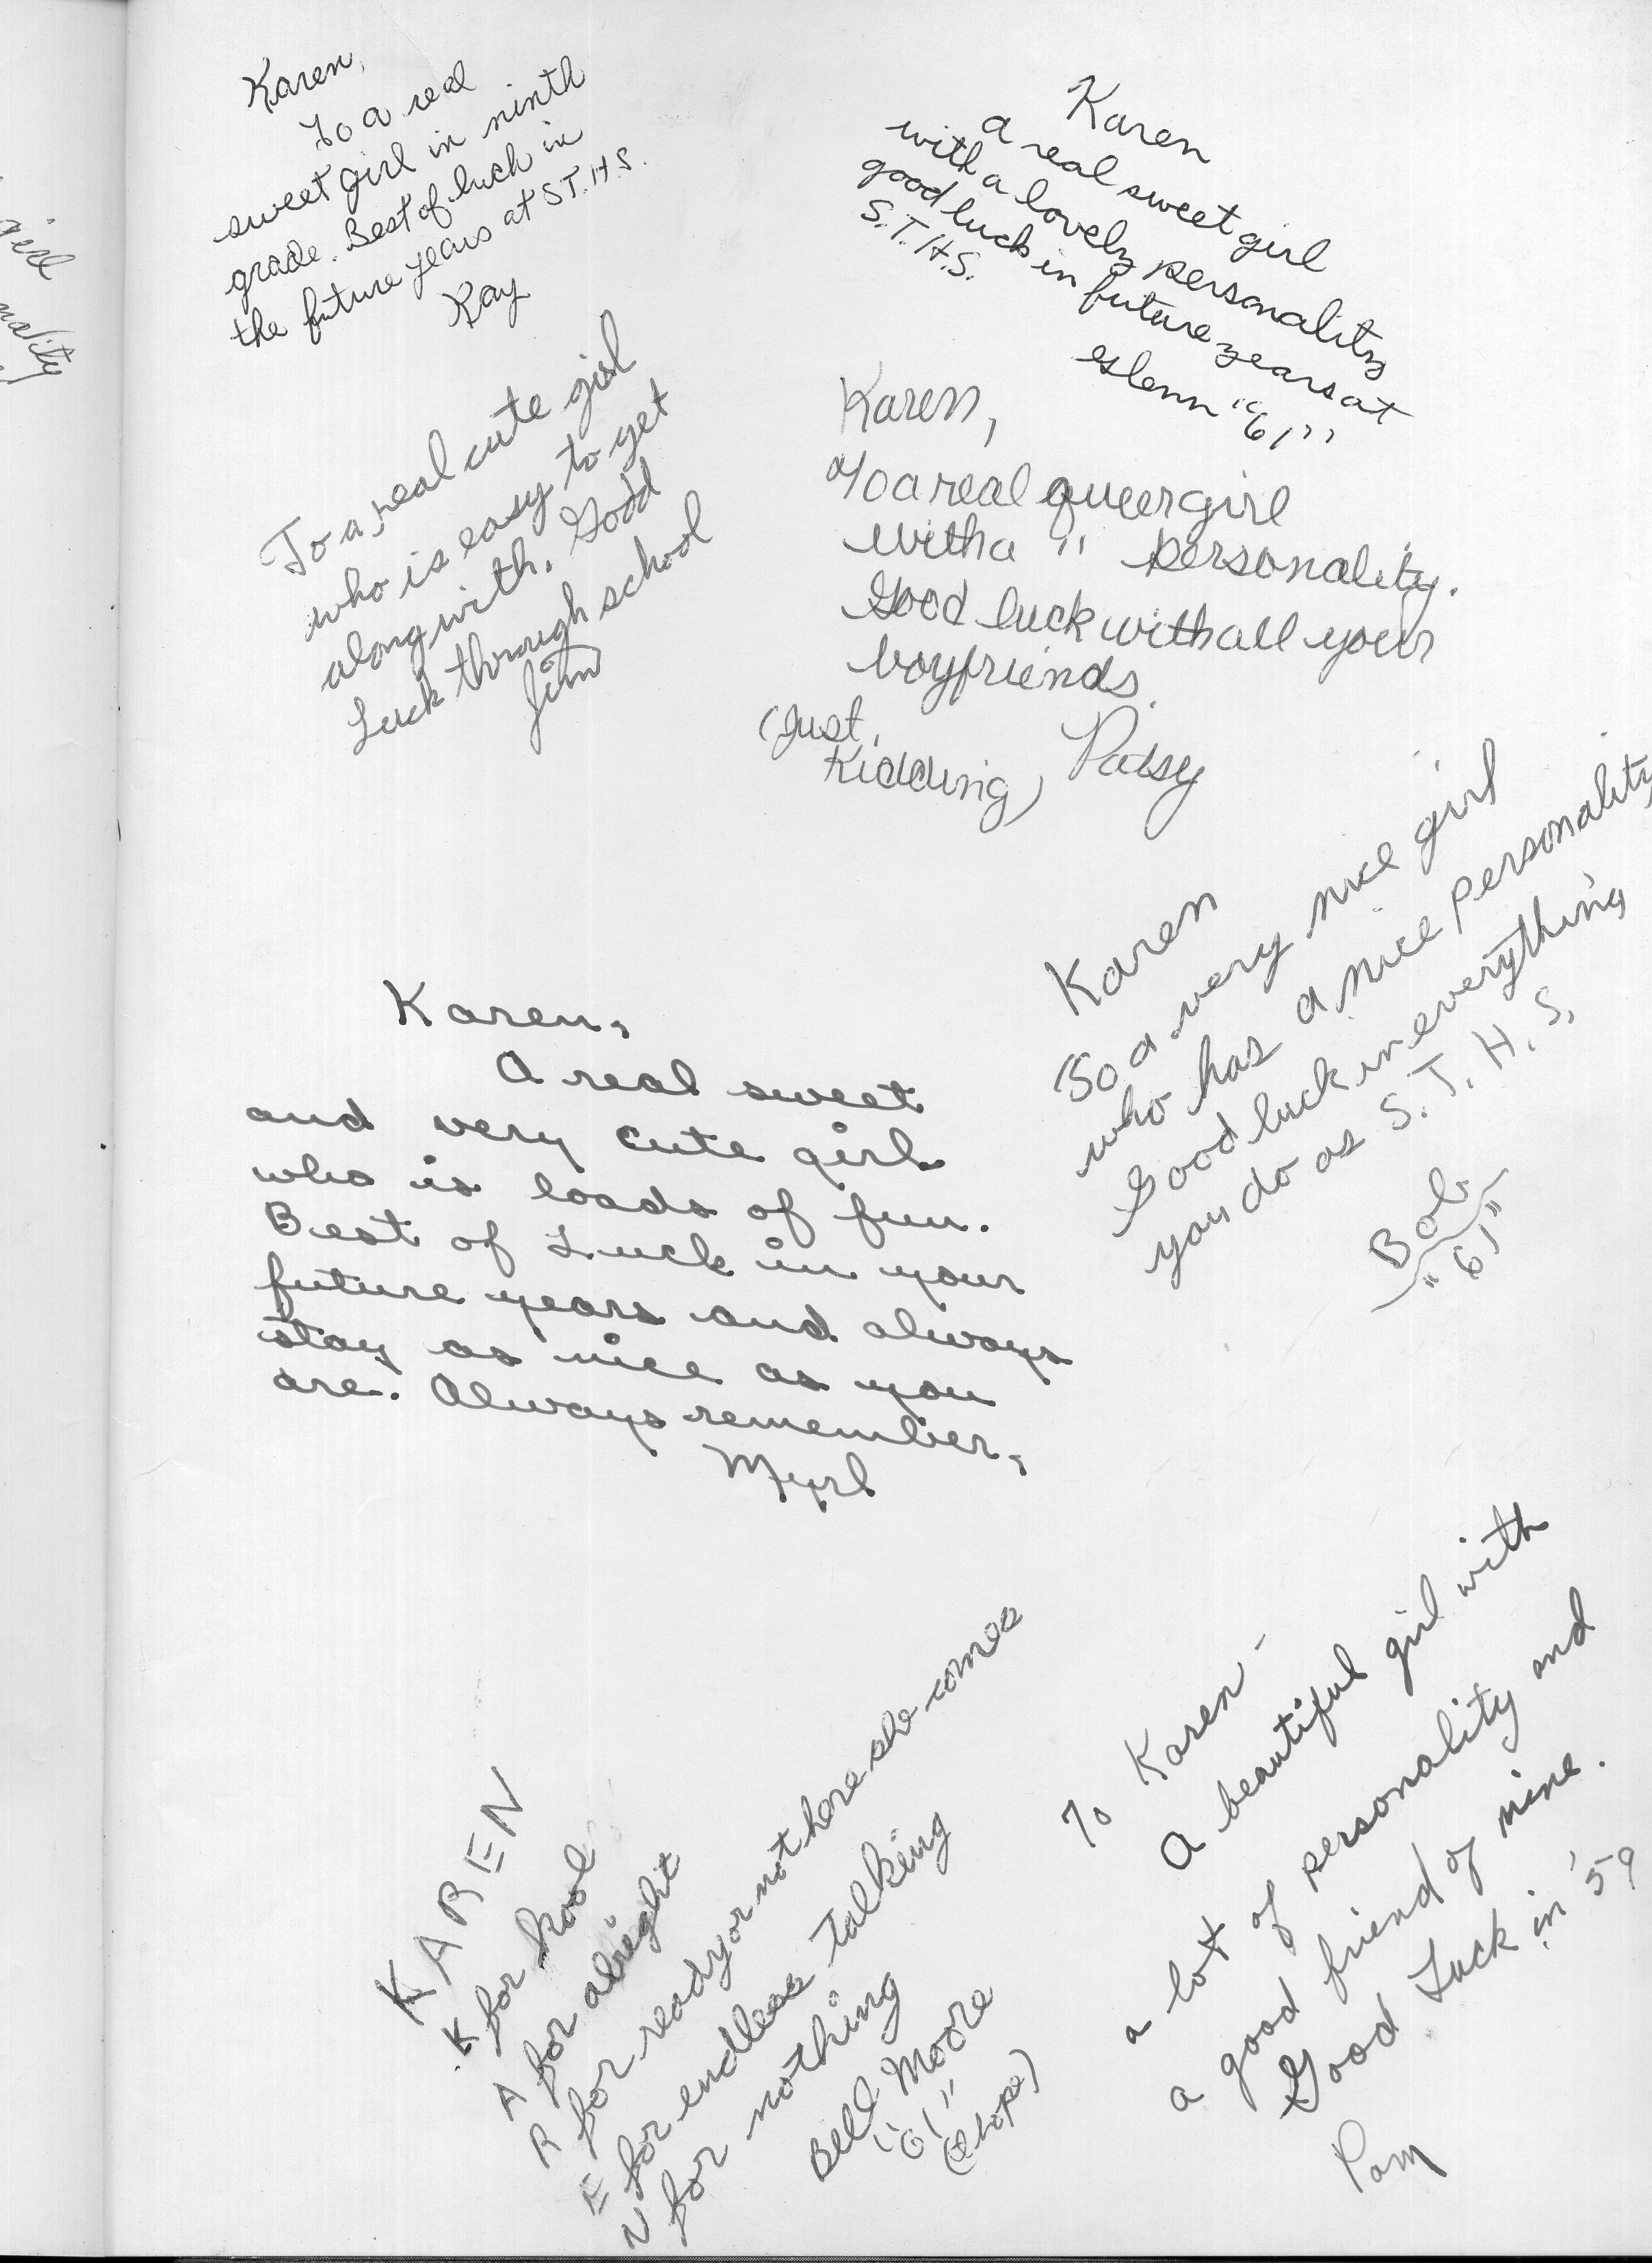 girl
nality
Karen,
To a real
sweet girl in ninth
grade. Best of luck in
the future years at S.T.H.S.
Kay
Karen
a real sweet girl
with a lovely personality
good luck in future years at
S.T.H.S.
Glenn "61"
To a real cute girl
who is easy to get
along with. Good
Luck through school
Jim
Karen,
To a real queer girl
with a " personality.
Good luck with all your
boyfriends.
(Just
Kidding)
Patsy
Karen
To a very nice girl
who has a nice personality
Good luck in everything
you do as S.T.H.S.
Bob
"61"
Karen,
A real sweet
and very cute girl
who is loads of fun.
Best of Luck in your
future years and always
stay as nice as you
are. Always remember,
Myrl
KAREN
K for kool
A for alright
R for ready or not here she comes
E for endless talking
N for nothing
Bill Moore
"61"
(I hope)
To Karen -
A beautiful girl with
a lot of personality and
a good friend of mine.
Good Luck in '59
Pam